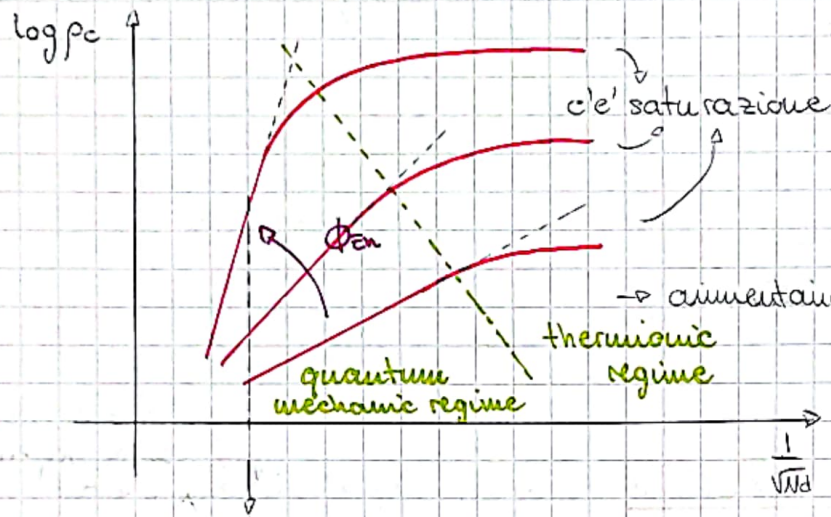 log ρc
c'e' saturazione
ϕBn
→
thermionic
regime
quantum
mechanic regime
1
√Nd